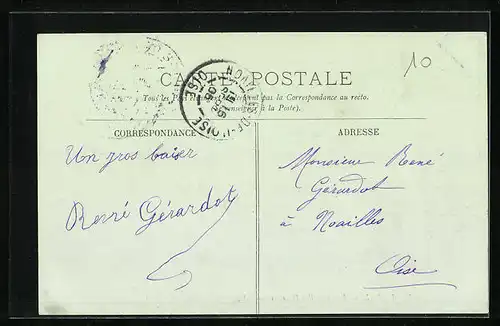 10
CARTE POSTALE
Tous les Pays
pas la Correspondance au recto.
à la Poste).
CORRESPONDANCE
ADRESSE
Un gros baiser
René Gérardot
Monsieur René
Gérardot
à Noailles
Oise